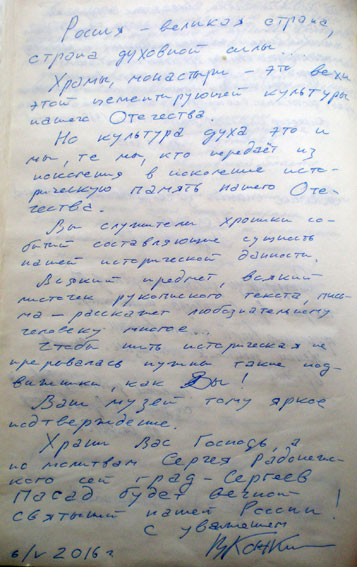 Россия – великая страна,
страна духовной силы...
Храмы, монастыри – это вехи
этой цементирующей культуры
нашего Отечества.
Но культура духа это и
мы, те мы, кто передаёт из
поколения в поколение исто-
рическую память нашего Оте-
чества.
Вы служители хроники со-
бытий составляющие сущность
нашей исторической данности.
Всякий предмет, всякий
листочек рукописного текста, пись-
ма – расскажет любознательному
человеку многое...
Чтобы нить историческая не
прервалась нужны такие под-
вижники, как Вы!
Ваш музей тому яркое
подтверждение.
Храни Вас Господь, а
по молитвам Сергея Радонежс-
кого сей град – Сергеев
Посад будет вечной
святыней нашей России!
с уважением
6/V 2016 г